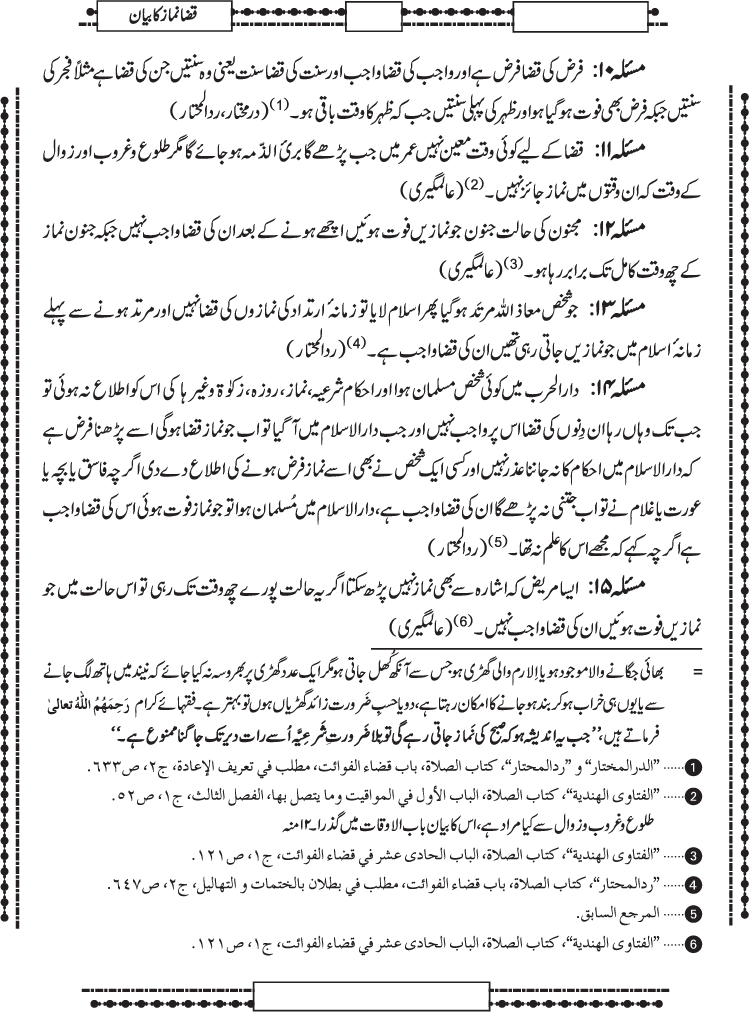 قضا نماز کا بیان
مسئلہ ۱۰: فرض کی قضا فرض ہے اور واجب کی قضا واجب اور سنت کی قضا سنت یعنی وہ سنتیں جن کی قضا ہے مثلاً فجر کی
سنتیں جبکہ فرض بھی فوت ہوگیا ہو اور ظہر کی پہلی سنتیں جب کہ ظہر کا وقت باقی ہو۔(1) (درمختار، ردالمحتار)
مسئلہ ۱۱: قضا کے لیے کوئی وقت معین نہیں عمر میں جب پڑھے گا بریٔ الذّمہ ہو جائے گا مگر طلوع و غروب اور زوال
کے وقت کہ ان وقتوں میں نماز جائز نہیں۔(2) (عالمگیری)
مسئلہ ۱۲: مجنون کی حالت جنون جو نمازیں فوت ہوئیں اچھے ہونے کے بعد ان کی قضا واجب نہیں جبکہ جنون نماز
کے چھ وقت کامل تک برابر رہا ہو۔(3) (عالمگیری)
مسئلہ ۱۳: جو شخص معاذ اللہ مرتد ہوگیا پھر اسلام لایا تو زمانۂ ارتداد کی نمازوں کی قضا نہیں اور مرتد ہونے سے پہلے
زمانۂ اسلام میں جو نمازیں جاتی رہی تھیں ان کی قضا واجب ہے۔(4) (ردالمحتار)
مسئلہ ۱۴: دارالحرب میں کوئی شخص مسلمان ہوا اور احکام شرعیہ، نماز، روزہ، زکوٰۃ وغیرہا کی اس کو اطلاع نہ ہوئی تو
جب تک وہاں رہا ان دِنوں کی قضا اس پر واجب نہیں اور جب دارالاسلام میں آ گیا تو اب جو نماز قضا ہوگی اسے پڑھنا فرض ہے
کہ دارالاسلام میں احکام کا نہ جاننا عذر نہیں اور کسی ایک شخص نے بھی اسے نماز فرض ہونے کی اطلاع دے دی اگرچہ فاسق یا بچہ یا
عورت یا غلام نے تو اب جتنی نہ پڑھے گا ان کی قضا واجب ہے، دارالاسلام میں مُسلمان ہوا تو جو نماز فوت ہوئی اس کی قضا واجب
ہے اگرچہ کہے کہ مجھے اس کا علم نہ تھا۔(5) (ردالمحتار)
مسئلہ ۱۵: ایسا مریض کہ اشارہ سے بھی نماز نہیں پڑھ سکتا اگر یہ حالت پورے چھ وقت تک رہی تو اس حالت میں جو
نمازیں فوت ہوئیں ان کی قضا واجب نہیں۔(6) (عالمگیری)
= بھائی جگانے والا موجود ہو یا اِلارم والی گھڑی ہو جس سے آنکھ کُھل جاتی ہو مگر ایک عدد گھڑی پر بھروسہ نہ کیا جائے کہ نیند میں ہاتھ لگ جانے
سے یا یوں ہی خراب ہو کر بند ہو جانے کا امکان رہتا ہے، دو یا حسبِ ضَرورت زائد گھڑیاں ہوں تو بہتر ہے۔ فقہائے کرام رَحِمَهُمُ اللهُ تعالیٰ
فرماتے ہیں، ”جب یہ اندیشہ ہو کہ صبح کی نَماز جاتی رہے گی تو بلا ضَرورتِ شَرعِیَّہ اُسے رات دیر تک جاگنا ممنوع ہے۔“
1 ...... ”الدرالمختار“ و ”ردالمحتار“، کتاب الصلاة، باب قضاء الفوائت، مطلب في تعريف الإعادة، ج٢، ص٦٣٣.
2 ...... ”الفتاوى الهندية“، كتاب الصلاة، الباب الأول في المواقيت وما يتصل بها، الفصل الثالث، ج١، ص٥٢.
طلوع و غروب و زوال سے کیا مراد ہے، اس کا بیان باب الاوقات میں گذرا۔ ۱۲ منہ
3 ...... ”الفتاوى الهندية“، كتاب الصلاة، الباب الحادى عشر في قضاء الفوائت، ج١، ص١٢١.
4 ...... ”ردالمحتار“، كتاب الصلاة، باب قضاء الفوائت، مطلب في بطلان بالختمات و التهاليل، ج٢، ص٦٤٧.
5 ...... المرجع السابق.
6 ...... ”الفتاوى الهندية“، كتاب الصلاة، الباب الحادى عشر في قضاء الفوائت، ج١، ص١٢١.